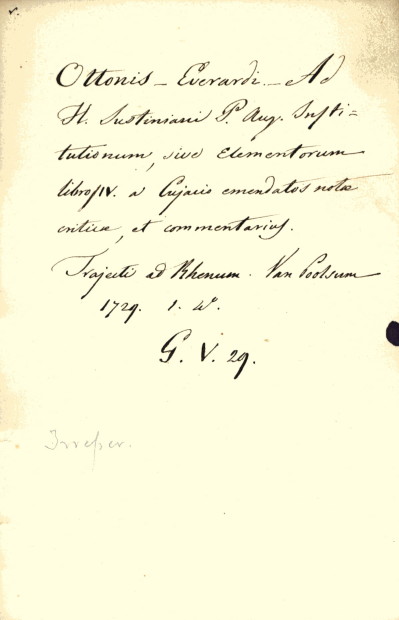 Ottonis – Everardi. – Ad
Fl. Justiniani P. Aug. Insti=
tutionum, sive Elementorum
libros IV. a Cujacio emendatos notæ
criticæ, et commentarius.
Trajecti ad Rhenum. Van Poolsum
1729. 1. 4º.
G. V. 29.